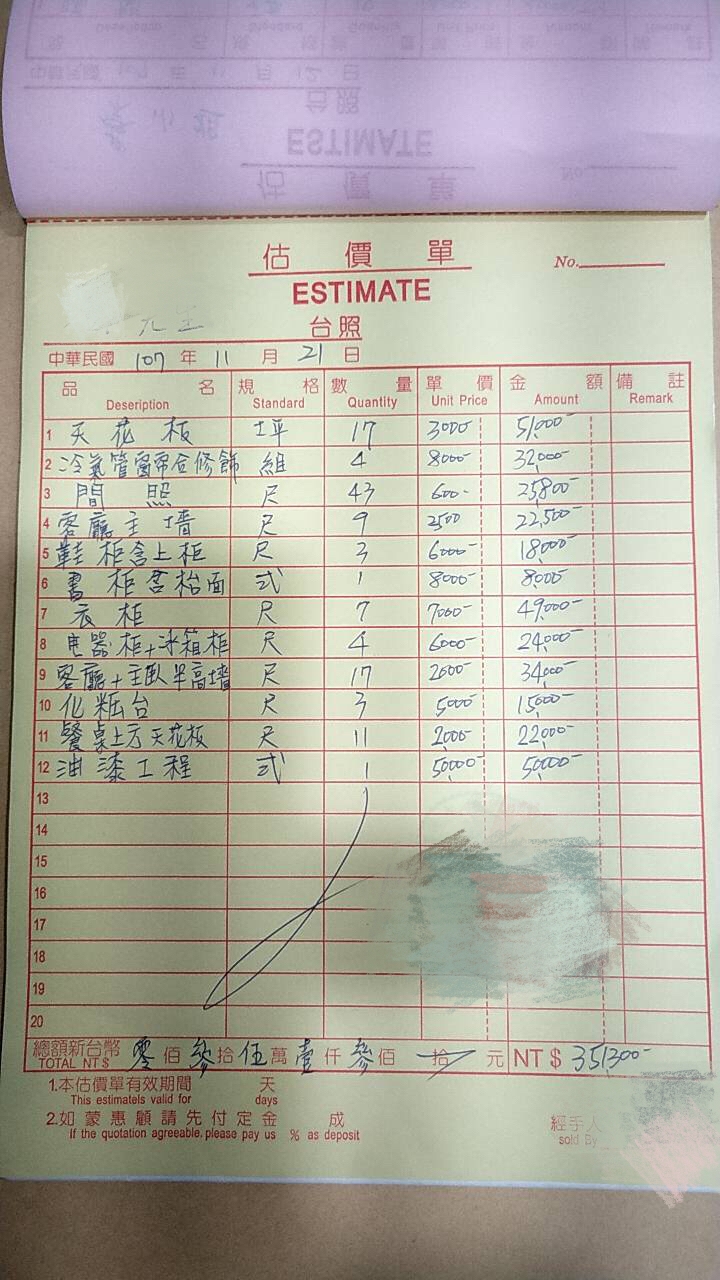 估價單
No.
ESTIMATE
台照
中華民國 107 年 11 月 21 日
品名 規格 數量 單價 金額 備註
Deseription Standard Quantity Unit Price Amount Remark
1 天花板 坪 17 3000- 51,000-
2 冷氣管窗帘盒修飾 組 4 8000- 32,000-
3 間照 尺 43 600- 25,800-
4 客廳主墻 尺 9 2500 22,500-
5 鞋柜含上柜 尺 3 6000- 18,000-
6 書柜含枱面 式 1 8000- 8,000-
7 衣柜 尺 7 7000- 49,000-
8 电器柜+冰箱柜 尺 4 6000- 24,000-
9 客廳+主臥半高墙 尺 17 2000- 34,000-
10 化粧台 尺 3 5000- 15,000-
11 餐桌上方天花板 尺 11 2,000- 22,000-
12 油漆工程 式 1 50,000- 50,000-
13
14
15
16
17
18
19
20
總額新台幣 零佰參拾伍萬壹仟參佰拾元 NT$ 351,300-
TOTAL NT$
1.本估價單有效期間 天
This estimatels valid for days
2.如蒙惠顧請先付定金 成
If the quotation agreeable, please pay us % as deposit
經手人
sold By